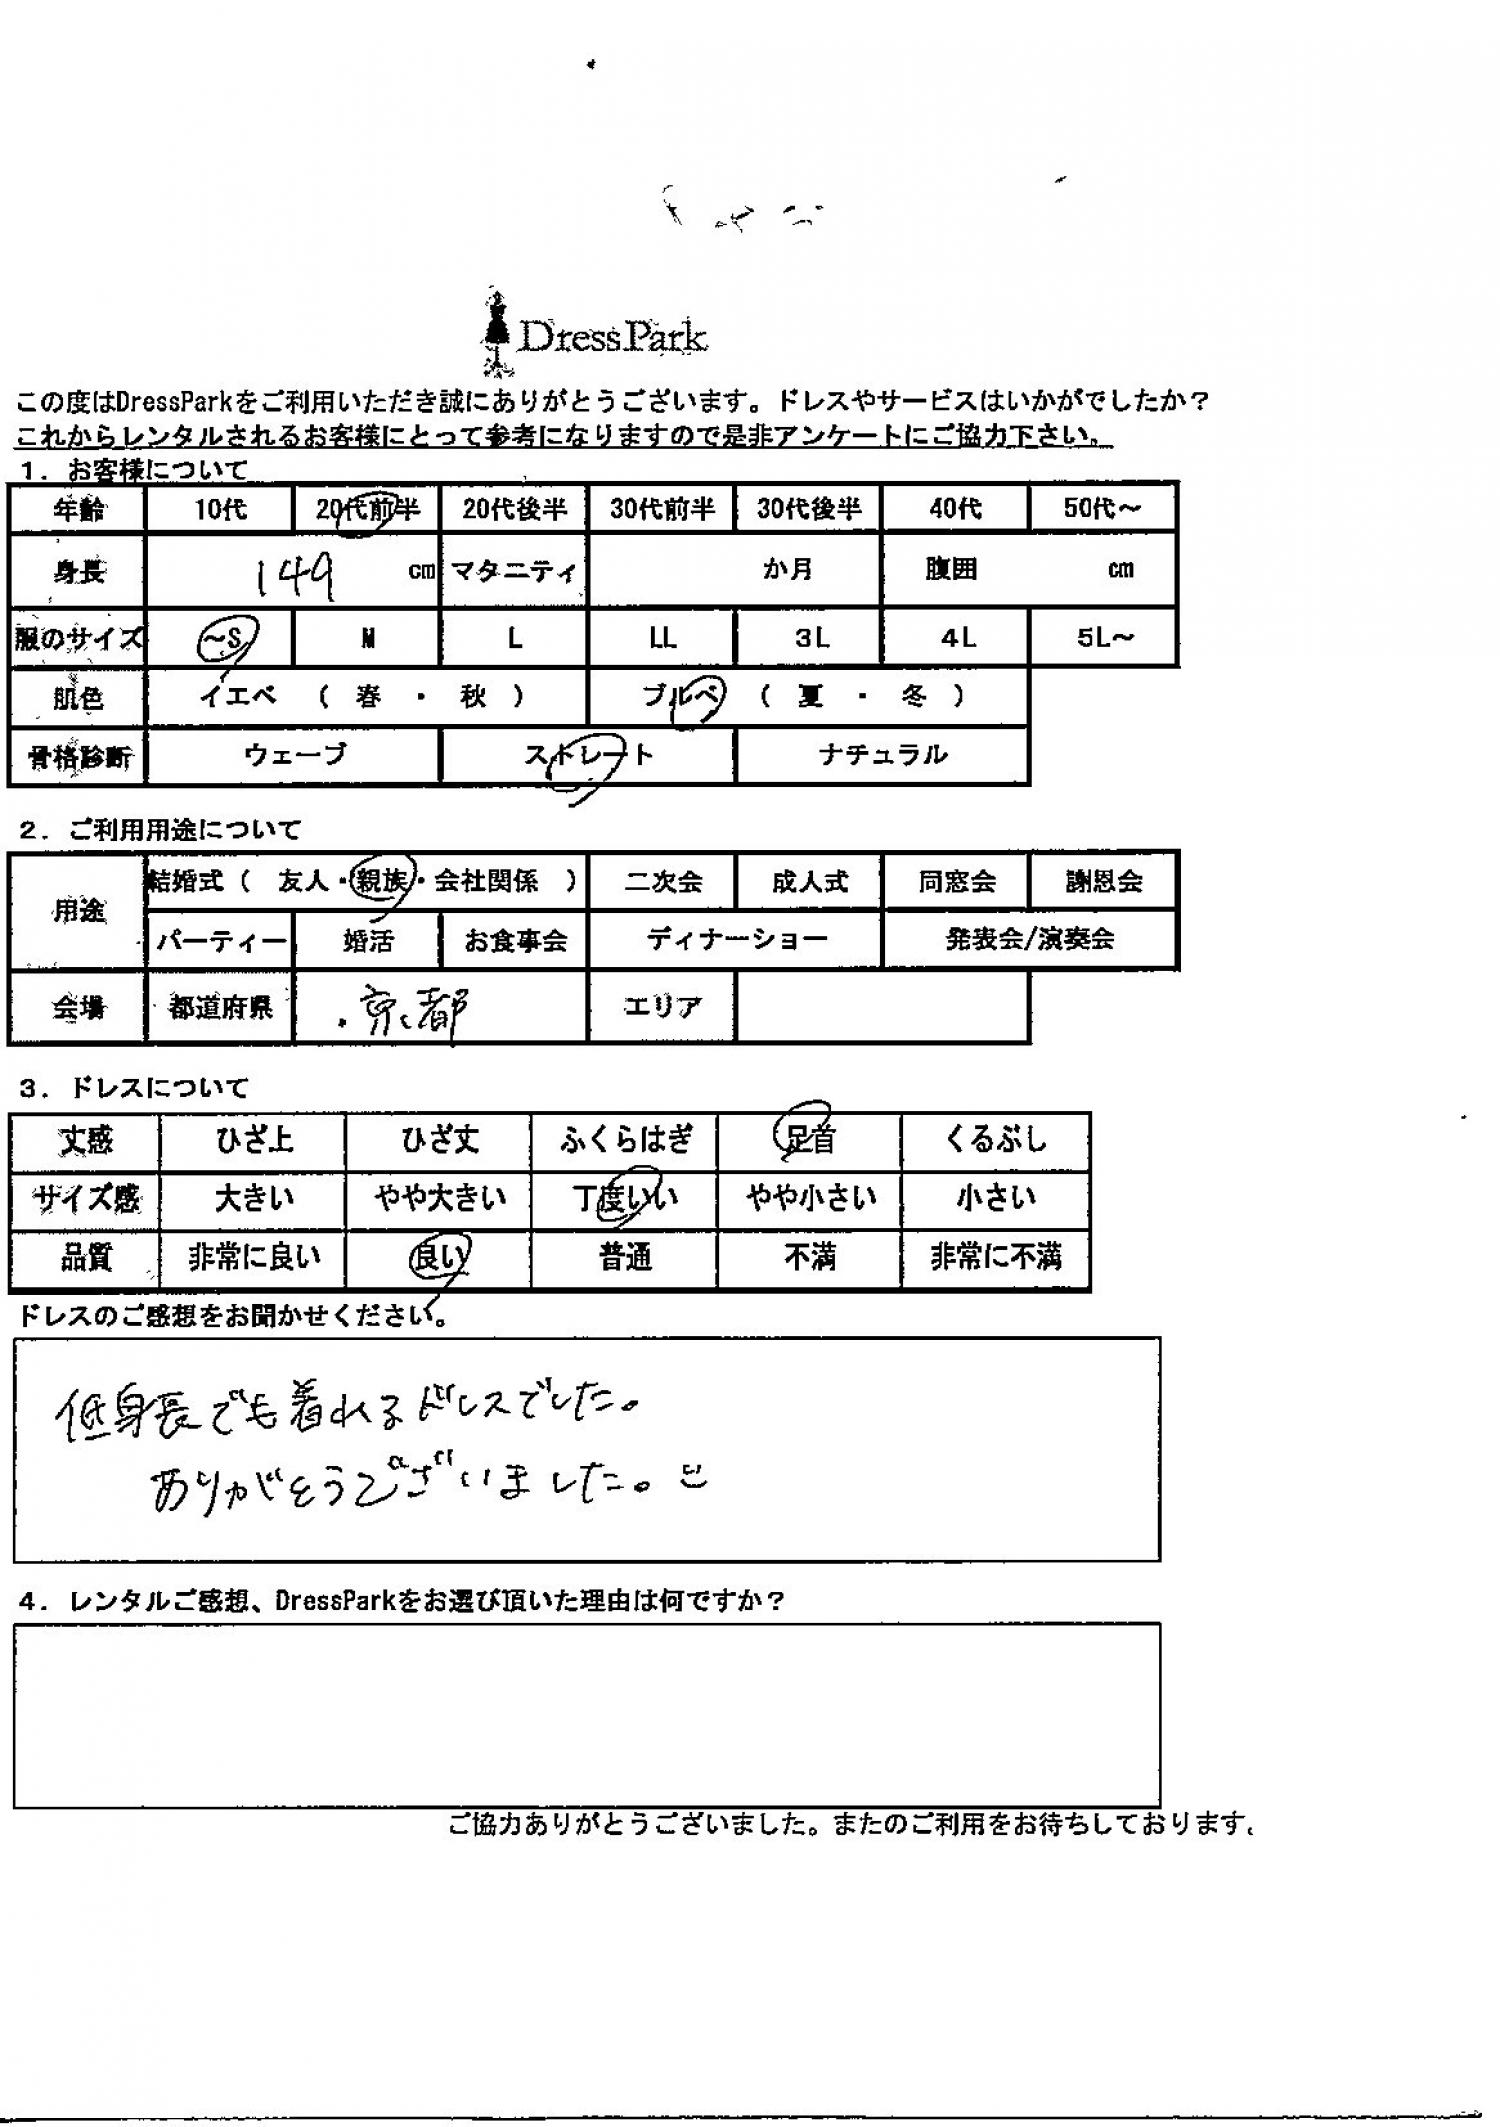 DressPark
この度はDressParkをご利用いただき誠にありがとうございます。ドレスやサービスはいかがでしたか？
これからレンタルされるお客様にとって参考になりますので是非アンケートにご協力下さい。
1．お客様について
年齢 10代 20代前半 20代後半 30代前半 30代後半 40代 50代～
身長 149 cm マタニティ か月 腹囲 cm
服のサイズ ～S M L LL 3L 4L 5L～
肌色 イエベ （ 春 ・ 秋 ） ブルベ （ 夏 ・ 冬 ）
骨格診断 ウェーブ ストレート ナチュラル
2．ご利用用途について
用途 結婚式（ 友人・親族・会社関係 ） 二次会 成人式 同窓会 謝恩会
パーティー 婚活 お食事会 ディナーショー 発表会/演奏会
会場 都道府県 京都 エリア
3．ドレスについて
丈感 ひざ上 ひざ丈 ふくらはぎ 足首 くるぶし
サイズ感 大きい やや大きい 丁度いい やや小さい 小さい
品質 非常に良い 良い 普通 不満 非常に不満
ドレスのご感想をお聞かせください。
低身長でも着れるドレスでした。
ありがとうございました。
4．レンタルご感想、DressParkをお選び頂いた理由は何ですか？
ご協力ありがとうございました。またのご利用をお待ちしております。